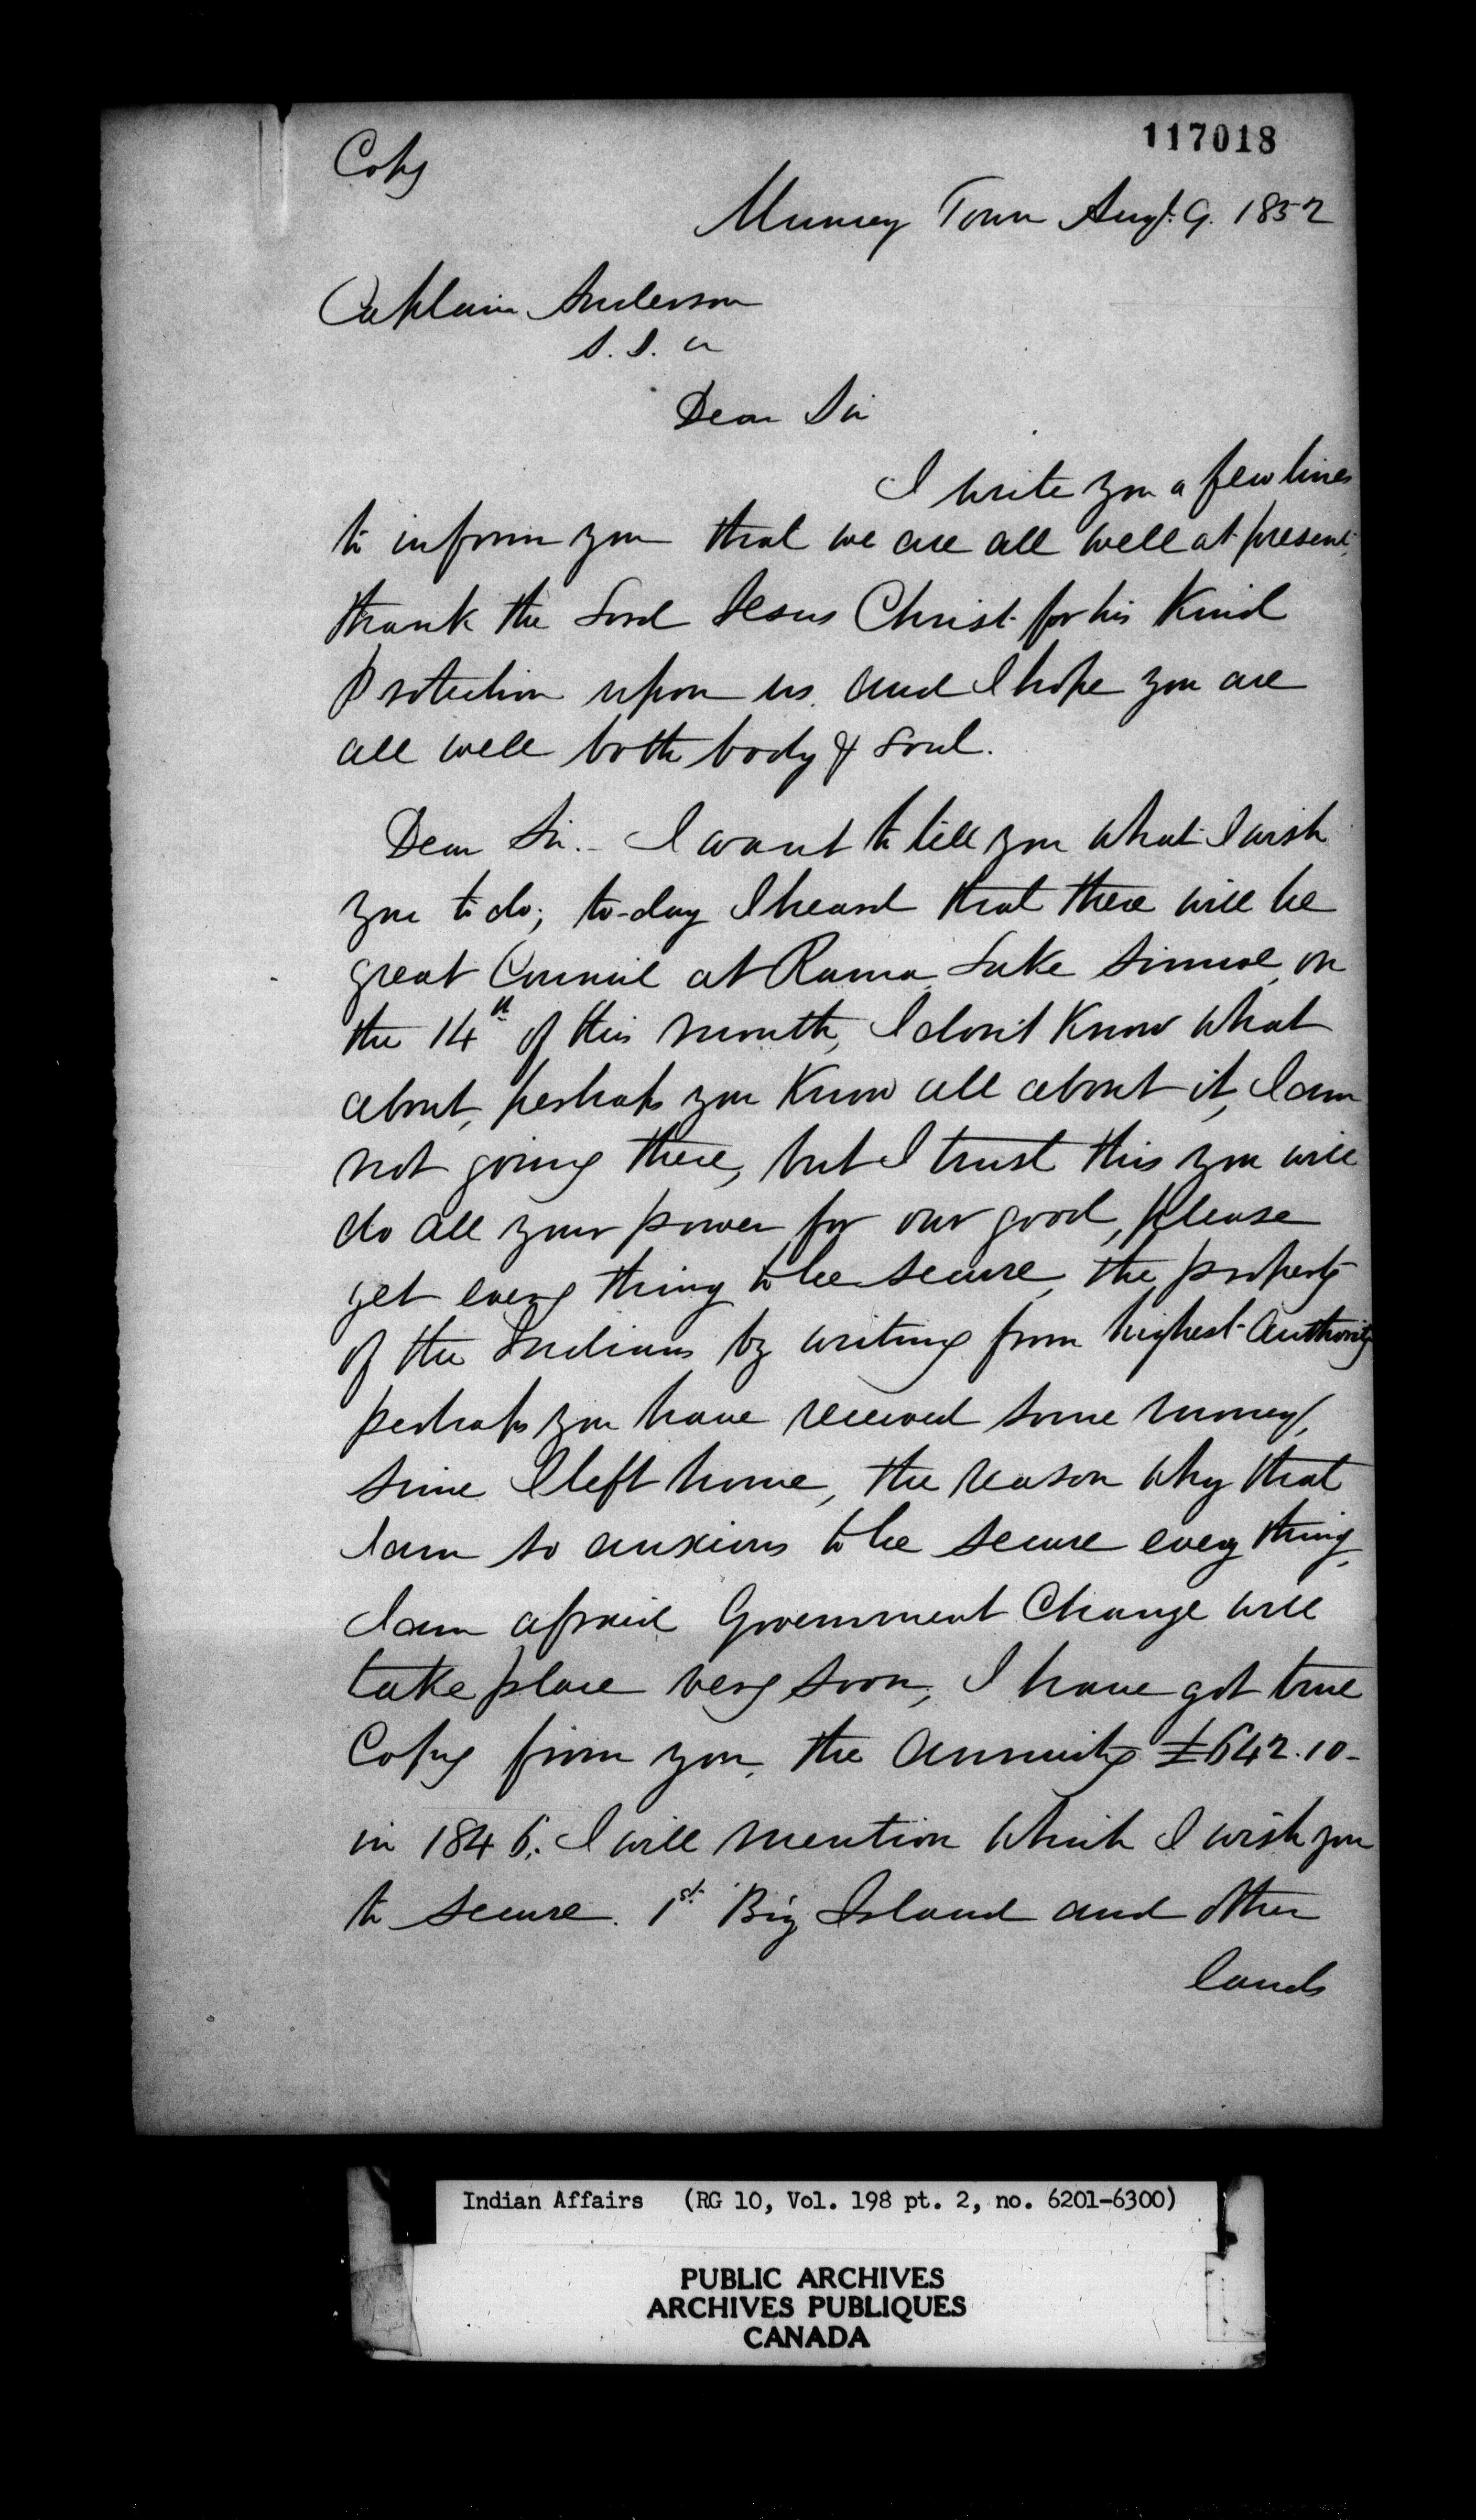 117018
Copy
Muncey Town Augt. 9. 1852
Captain Anderson
S. I. a
Dear Sir
I write you a few lines
to inform you that we are all well at present,
thank the Lord Jesus Christ for his Kind
Protection upon us. and I hope you are
all well both body & soul.
Dear Sir. - I want to tell you what I wish
you to do; to-day I heard that there will be
great Council at Rama, Lake Simcoe, on
the 14th of this month, I don't Know what
about, perhaps you Know all about it, I am
not going there, but I trust this you will
do all your power for our good, please
get every thing to be secure, the property
of the Indians by writing from highest Authority
perhaps you have received some money,
since I left home, the reason why that
I am so anxious to be secure every thing,
I am afraid Government Change will
take place very soon, I have got true
Copy from you, the Annuity £642.10-
in 1846. I will mention which I wish you
to secure. 1st. Big Island and other
lands
Indian Affairs (RG 10, Vol. 198 pt. 2, no. 6201-6300)
PUBLIC ARCHIVES
ARCHIVES PUBLIQUES
CANADA